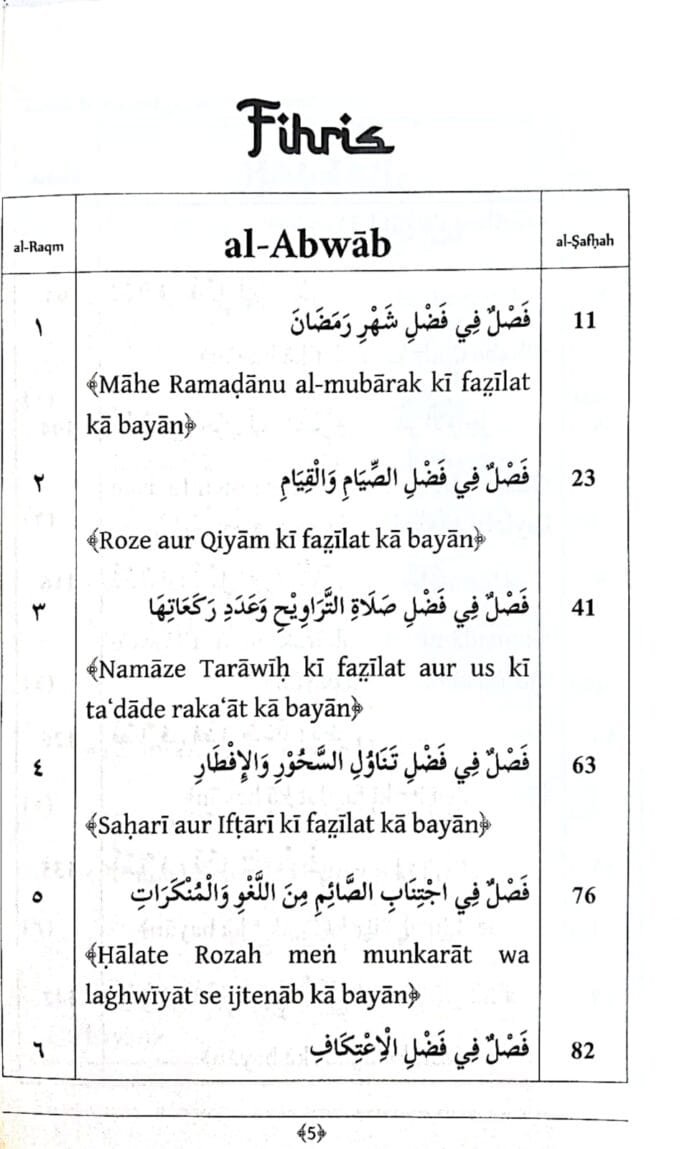 Fihris
al-Raqm al-Abwāb al-Ṣafḥah
١ فَصْلٌ فِي فَضْلِ شَهْرِ رَمَضَانَ 11
﴾Māhe Ramaḍānu al-mubārak kī faz̤īlat
kā bayān﴿
٢ فَصْلٌ فِي فَضْلِ الصِّيَامِ وَالْقِيَامِ 23
﴾Roze aur Qiyām kī faz̤īlat kā bayān﴿
٣ فَصْلٌ فِي فَضْلِ صَلَاةِ التَّرَاوِيْحِ وَعَدَدِ رَكَعَاتِهَا 41
﴾Namāze Tarāwīḥ kī faz̤īlat aur us kī
ta‘dāde raka‘āt kā bayān﴿
٤ فَصْلٌ فِي فَضْلِ تَنَاوُلِ السَّحُوْرِ وَالإِفْطَارِ 63
﴾Saḥarī aur Ifṭārī kī faz̤īlat kā bayān﴿
٥ فَصْلٌ فِي اجْتِنَابِ الصَّائِمِ مِنَ اللَّغْوِ وَالْمُنْكَرَاتِ 76
﴾Ḥālate Rozah meṅ munkarāt wa
laġhwīyāt se ijtenāb kā bayān﴿
٦ فَصْلٌ فِي فَضْلِ الْاِعْتِكَافِ 82
﴾5﴿